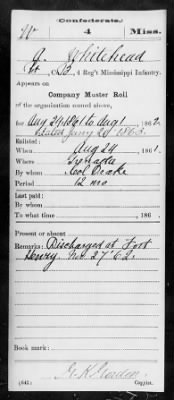 Confederate.
W 4 Miss.
A. Whitehead
Co. B, 4 Reg't Mississippi Infantry.
Appears on
Company Muster Roll
of the organization named above,
for Aug 24 1861 to Aug 1, 1862.
dated Jany 20 1863.
Enlisted:
When Aug 24, 1861.
Where
By whom Col Drake
Period 12 mo
Last paid:
By whom
To what time , 186 .
Present or absent
Remarks: Discharged at Fort
Henry 27 '62.
Book mark:
(642) Copyist.